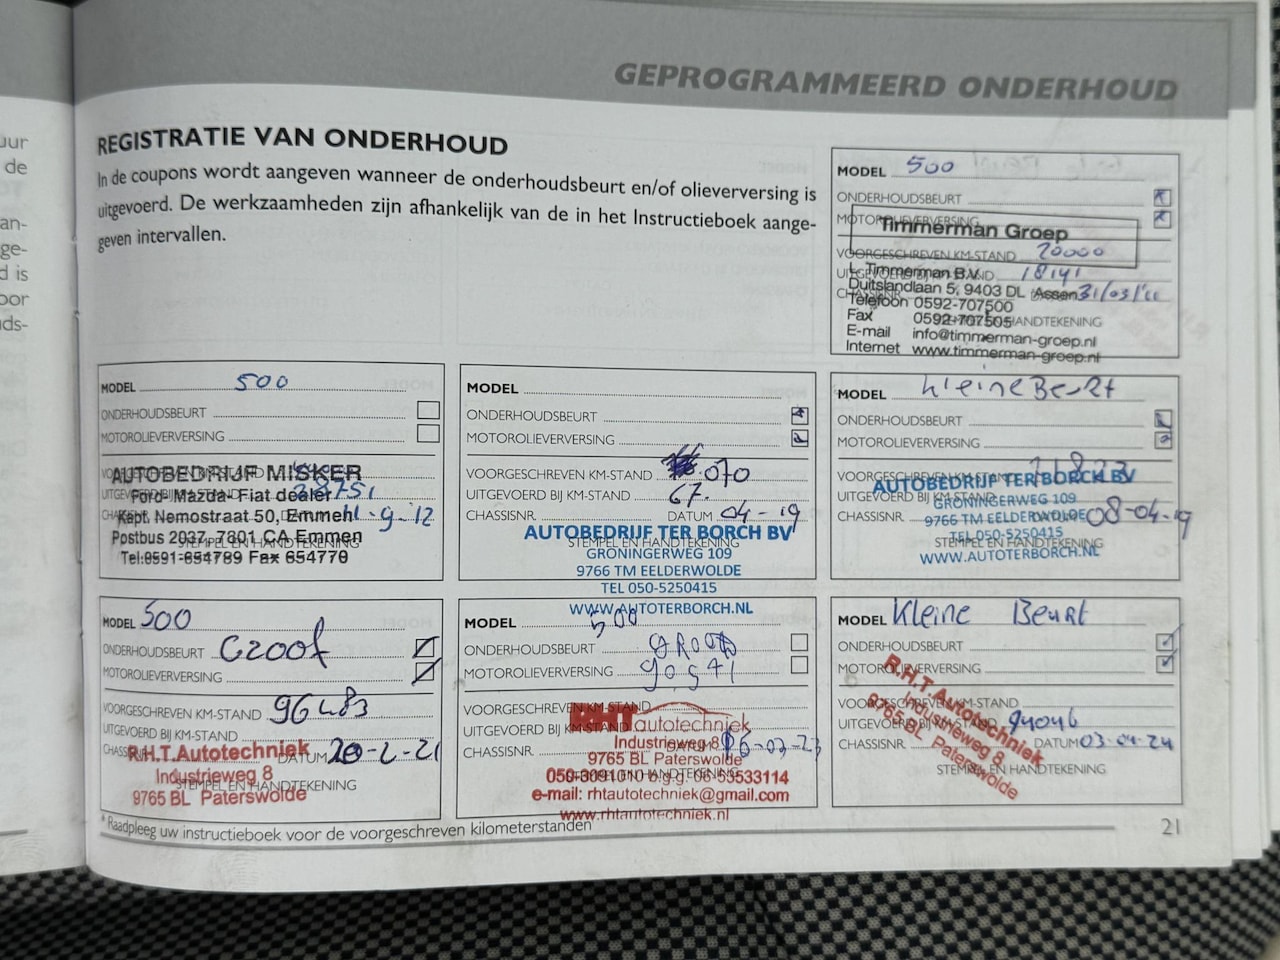 uur
de
an-
ge-
d is
oor
uds-
GEPROGRAMMEERD ONDERHOUD
REGISTRATIE VAN ONDERHOUD
In de coupons wordt aangeven wanneer de onderhoudsbeurt en/of olieverversing is
uitgevoerd. De werkzaamheden zijn afhankelijk van de in het Instructieboek aange-
geven intervallen.
MODEL 500
ONDERHOUDSBEURT
MOTOROLIEVERVERSING
Timmerman Groep
VOORGESCHREVEN KM-STAND 20000
UITGEVOERD BIJ KM-STAND 18141
L. Timmerman B.V.
Duitslandlaan 5, 9403 DL Assen
CHASSISNR. 31/03/'11
Telefoon 0592-707500
Fax 0592-707505
HANDTEKENING
E-mail info@timmerman-groep.nl
Internet www.timmerman-groep.nl
MODEL 500
ONDERHOUDSBEURT
MOTOROLIEVERVERSING
VOORGESCHREVEN KM-STAND
AUTOBEDRIJF MISKER
UITGEVOERD BIJ KM-STAND 38751
Ford-Mazda-Fiat dealer
Kapt. Nemostraat 50, Emmen
11-9-'12
Postbus 2037, 7801 CA Emmen
STEMPEL EN HANDTEKENING
Tel:0591-654789 Fax 654770
MODEL
ONDERHOUDSBEURT
MOTOROLIEVERVERSING
VOORGESCHREVEN KM-STAND 070
UITGEVOERD BIJ KM-STAND 67.
CHASSISNR. DATUM 04-19
AUTOBEDRIJF TER BORCH BV
STEMPEL EN HANDTEKENING
GRONINGERWEG 109
9766 TM EELDERWOLDE
TEL 050-5250415
WWW.AUTOTERBORCH.NL
MODEL kleine Beurt
ONDERHOUDSBEURT
MOTOROLIEVERVERSING
VOORGESCHREVEN KM-STAND
AUTOBEDRIJF TER BORCH BV
UITGEVOERD BIJ KM-STAND
GRONINGERWEG 109
CHASSISNR. DATUM 08-04-19
9766 TM EELDERWOLDE
TEL 050-5250415
STEMPEL EN HANDTEKENING
WWW.AUTOTERBORCH.NL
MODEL 500
ONDERHOUDSBEURT Groot
MOTOROLIEVERVERSING
VOORGESCHREVEN KM-STAND 96483
UITGEVOERD BIJ KM-STAND
CHASSISNR. DATUM 20-2-21
R.H.T. Autotechniek
Industrieweg 8
STEMPEL EN HANDTEKENING
9765 BL Paterswolde
MODEL 500
ONDERHOUDSBEURT groot
MOTOROLIEVERVERSING
VOORGESCHREVEN KM-STAND
RHT autotechniek
UITGEVOERD BIJ KM-STAND
Industrieweg 8
CHASSISNR. 23
9765 BL Paterswolde
STEMPEL EN HANDTEKENING
e-mail: rhtautotechniek@gmail.com
www.rhtautotechniek.nl
MODEL Kleine Beurt
ONDERHOUDSBEURT
MOTOROLIEVERVERSING
VOORGESCHREVEN KM-STAND
UITGEVOERD BIJ KM-STAND
CHASSISNR. DATUM 03-04-24
STEMPEL EN HANDTEKENING
R.H.T. Autotechniek
Industrieweg 8
9765 BL Paterswolde
* Raadpleeg uw instructieboek voor de voorgeschreven kilometerstanden
21